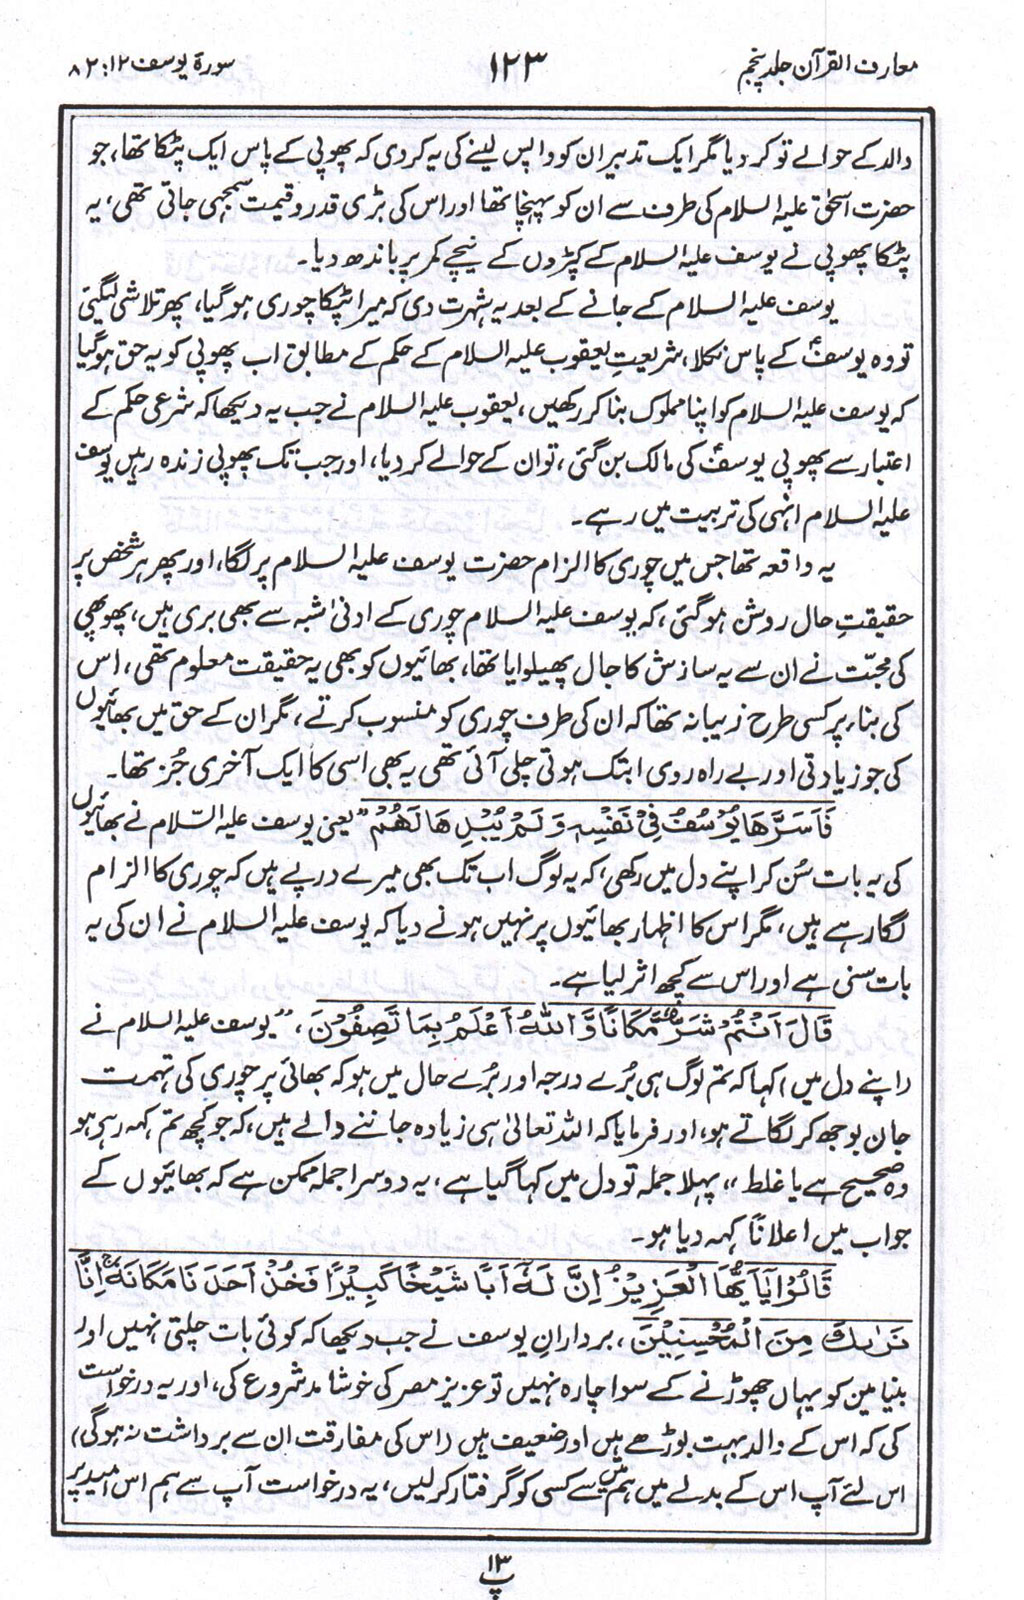 معارف القرآن جلد پنجم
۱۲۳
سورۃ یوسف ۱۲ : ۸۲
والد کے حوالے تو کر دیا مگر ایک تدبیر ان کو واپس لینے کی یہ کر دی کہ پھوپی کے پاس ایک پٹکا تھا، جو
حضرت اسحٰق علیہ السلام کی طرف سے ان کو پہنچا تھا اور اس کی بڑی قدر و قیمت سمجھی جاتی تھی، یہ
پٹکا پھوپی نے یوسف علیہ السلام کے کپڑوں کے نیچے کمر پر باندھ دیا۔
یوسف علیہ السلام کے جانے کے بعد یہ شہرت دی کہ میرا پٹکا چوری ہو گیا، پھر تلاشی لیگئی
تو وہ یوسفؑ کے پاس نکلا، شریعتِ یعقوب علیہ السلام کے حکم کے مطابق اب پھوپی کو یہ حق ہو گیا
کہ یوسف علیہ السلام کو اپنا مملوک بنا کر رکھیں، یعقوب علیہ السلام نے جب یہ دیکھا کہ شرعی حکم کے
اعتبار سے پھوپی یوسفؑ کی مالک بن گئی، تو ان کے حوالے کر دیا، اور جب تک پھوپی زندہ رہیں یوسف
علیہ السلام انہی کی تربیت میں رہے۔
یہ واقعہ تھا جس میں چوری کا الزام حضرت یوسف علیہ السلام پر لگا، اور پھر ہر شخص پر
حقیقتِ حال روشن ہو گئی، کہ یوسف علیہ السلام چوری کے ادنیٰ شبہ سے بھی بری ہیں، پھوپھی
کی محبّت نے ان سے یہ سازش کا جال پھیلوایا تھا، بھائیوں کو بھی یہ حقیقت معلوم تھی، اس
کی بناء پر کسی طرح زیبا نہ تھا کہ ان کی طرف چوری کو منسوب کرتے، مگر ان کے حق میں بھائیوں
کی جو زیادتی اور بے راہ روی ابتک ہوتی چلی آئی تھی یہ بھی اسی کا ایک آخری جُز تھا۔
فَاَسَرَّهَا يُوْسُفُ فِيْ نَفْسِهٖ وَلَمْ يُبْدِهَا لَهُمْ ”یعنی یوسف علیہ السّلام نے بھائیوں
کی یہ بات سُن کر اپنے دل میں رکھی، کہ یہ لوگ اب تک بھی میرے درپے ہیں کہ چوری کا الزام
لگا رہے ہیں، مگر اس کا اظہار بھائیوں پر نہیں ہونے دیا کہ یوسف علیہ السلام نے ان کی یہ
بات سنی ہے اور اس سے کچھ اثر لیا ہے۔
قَالَ اَنْتُمْ شَرٌّ مَّكَانًا وَّاللهُ اَعْلَمُ بِمَا تَصِفُوْنَ، ”یوسف علیہ السلام نے
(اپنے دل میں) کہا کہ تم لوگ ہی بُرے درجہ اور بُرے حال میں ہو کہ بھائی پر چوری کی تہمت
جان بوجھ کر لگاتے ہو، اور فرمایا کہ اللہ تعالیٰ ہی زیادہ جاننے والے ہیں، کہ جو کچھ تم کہہ رہی ہو
وہ صحیح ہے یا غلط“ پہلا جملہ تو دل میں کہا گیا ہے، یہ دوسرا جملہ ممکن ہے کہ بھائیوں کے
جواب میں اعلاناً کہہ دیا ہو۔
قَالُوْا يٰٓاَيُّهَا الْعَزِيْزُ اِنَّ لَهٗٓ اَبًا شَيْخًا كَبِيْرًا فَخُذْ اَحَدَنَا مَكَانَهٗ ۚ اِنَّا
نَرٰىكَ مِنَ الْمُحْسِنِيْنَ، برادرانِ یوسف نے جب دیکھا کہ کوئی بات چلتی نہیں اور
بنیامین کو یہاں چھوڑنے کے سوا چارہ نہیں تو عزیز مصر کی خوشامد شروع کی، اور یہ درخواست
کی کہ اس کے والد بہت بوڑھے ہیں اور ضعیف ہیں (اس کی مفارقت ان سے برداشت نہ ہو گی)
اس لئے آپ اس کے بدلے میں ہم میں سے کسی کو گرفتار کر لیں، یہ درخواست آپ سے ہم اس امید پر
پ ۱۳